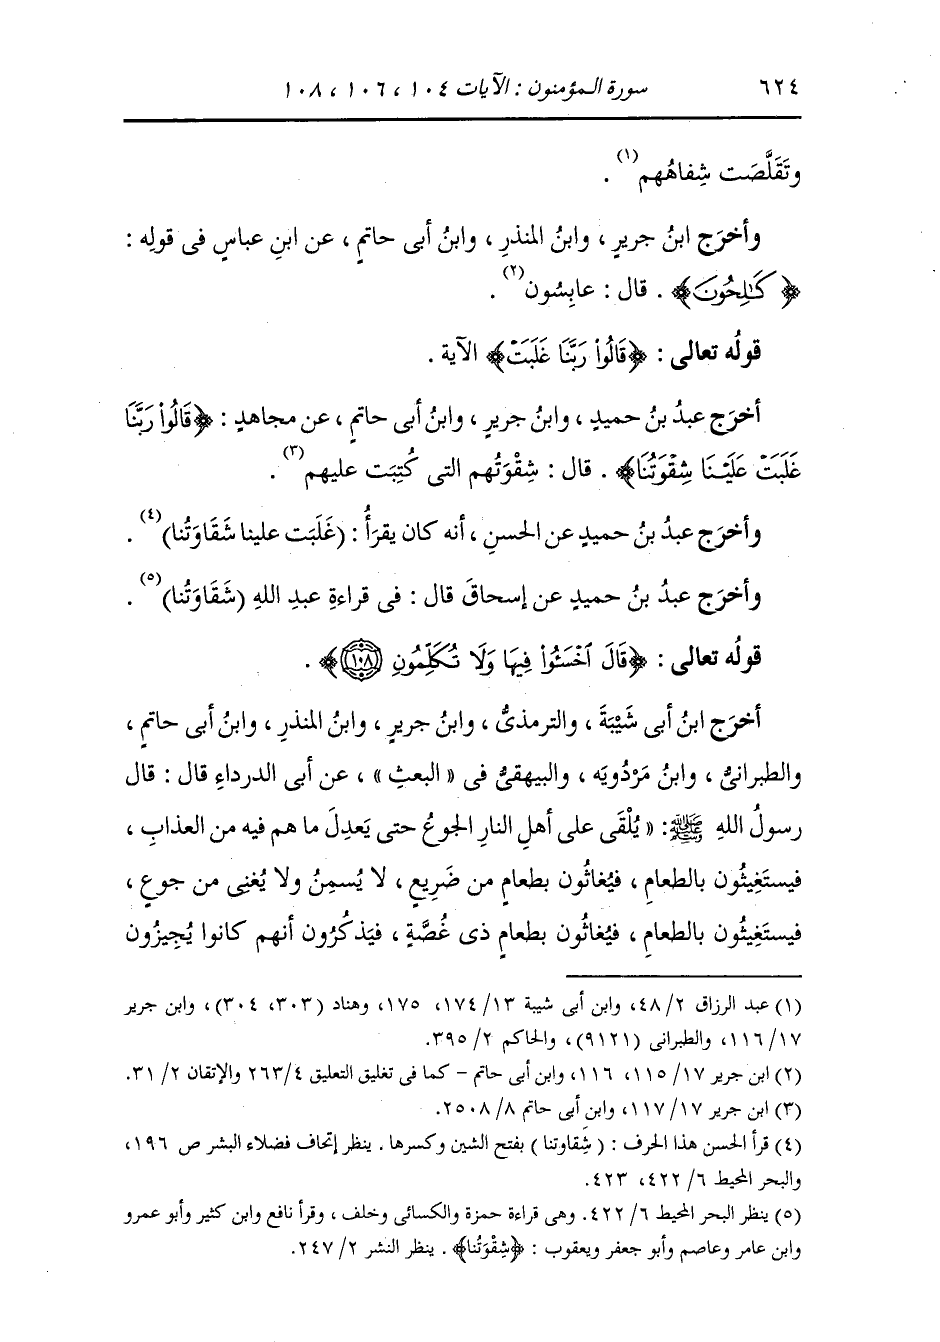 ٦٢٤ سورة المؤمنون : الآيات ١٠٤ ، ١٠٦ ، ١٠٨
وتَقَلَّصَت شِفاهُهم(١) .
وأخرَج ابنُ جريرٍ ، وابنُ المنذرِ ، وابنُ أبى حاتمٍ ، عن ابنِ عباسٍ فى قولِه :
﴿كَالِحُونَ﴾ . قال : عابِسُون(٢) .
قولُه تعالى : ﴿قَالُوا۟ رَبَّنَا غَلَبَتْ﴾ الآية .
أخرَج عبدُ بنُ حميدٍ ، وابنُ جريرٍ ، وابنُ أبى حاتمٍ ، عن مجاهدٍ : ﴿قَالُوا۟ رَبَّنَا
غَلَبَتْ عَلَيْنَا شِقْوَتُنَا﴾ . قال : شِقْوَتُهم التى كُتِبَت عليهم(٣) .
وأخرَج عبدُ بنُ حميدٍ عن الحسنِ ، أنه كان يقرَأُ : (غَلَبَت علينا شَقَاوَتُنا)(٤) .
وأخرَج عبدُ بنُ حميدٍ عن إسحاقَ قال : فى قراءةِ عبدِ اللهِ (شَقَاوَتُنا)(٥) .
قولُه تعالى : ﴿قَالَ ٱخْسَـُٔوا۟ فِيهَا وَلَا تُكَلِّمُونِ ١٠٨﴾ .
أخرَج ابنُ أبى شَيْبَةَ ، والترمذىُّ ، وابنُ جريرٍ ، وابنُ المنذرِ ، وابنُ أبى حاتمٍ ،
والطبرانىُّ ، وابنُ مَرْدُويَه ، والبيهقىُّ فى « البعثِ » ، عن أبى الدرداءِ قال : قال
رسولُ اللهِ ﷺ: « يُلْقَى على أهلِ النارِ الجوعُ حتى يَعدِلَ ما هم فيه من العذابِ ،
فيستَغِيثُون بالطعامِ ، فيُغاثُون بطعامٍ من ضَرِيعٍ ، لا يُسمِنُ ولا يُغنِى من جوعٍ ،
فيستغِيثُون بالطعامِ ، فيُغاثُون بطعامٍ ذى غُصَّةٍ ، فيَذكُرُون أنهم كانوا يُجِيزُون
(١) عبد الرزاق ٢/ ٤٨، وابن أبى شيبة ١٣/ ١٧٤، ١٧٥، وهناد (٣٠٣، ٣٠٤) ، وابن جرير
١٧/ ١١٦، والطبرانى (٩١٢١) ، والحاكم ٢/ ٣٩٥.
(٢) ابن جرير ١٧/ ١١٥، ١١٦، وابن أبى حاتم - كما فى تغليق التعليق ٢٦٣/٤ والإتقان ٢/ ٣١.
(٣) ابن جرير ١٧/ ١١٧، وابن أبى حاتم ٨/ ٢٥٠٨.
(٤) قرأ الحسن هذا الحرف : ( شَِقاوتنا ) بفتح الشين وكسرها . ينظر إتحاف فضلاء البشر ص ١٩٦،
والبحر المحيط ٦/ ٤٢٢، ٤٢٣.
(٥) ينظر البحر المحيط ٦/ ٤٢٢. وهى قراءة حمزة والكسائى وخلف ، وقرأ نافع وابن كثير وأبو عمرو
وابن عامر وعاصم وأبو جعفر ويعقوب : ﴿شِقْوَتُنا﴾ . ينظر النشر ٢/ ٢٤٧.